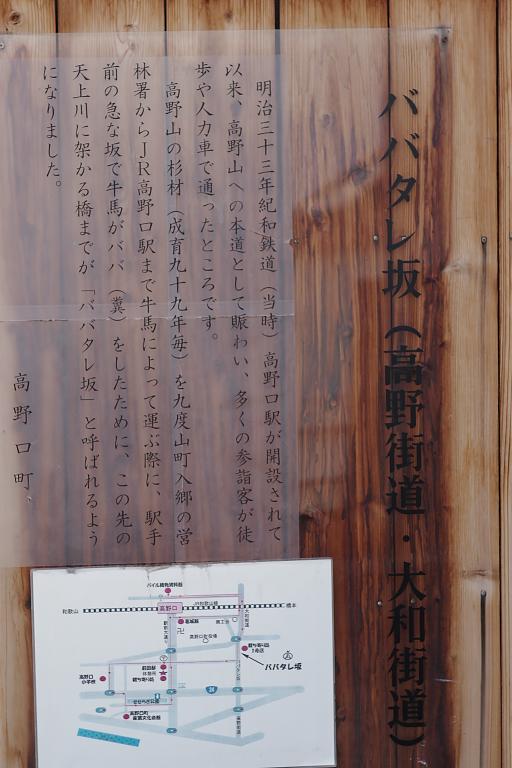 ババタレ坂（高野街道・大和街道）
明治三十三年紀和鉄道（当時）高野口駅が開設されて
以来、高野山への本道として賑わい、多くの参詣客が徒
歩や人力車で通ったところです。
高野山の杉材（成育九十九年毎）を九度山町入郷の営
林署からＪＲ高野口駅まで牛馬によって運ぶ際に、駅手
前の急な坂で牛馬がババ（糞）をしたために、この先の
天上川に架かる橋までが「ババタレ坂」と呼ばれるよう
になりました。
高野口町
パイル織物資料館
和歌山
JR和歌山線
高野口
橋本
葛城館
商工会
大和街道
高野口町役場
駅前大通
ババタレ坂
前田邸
休憩所
高野口
小学校
24
高野街道